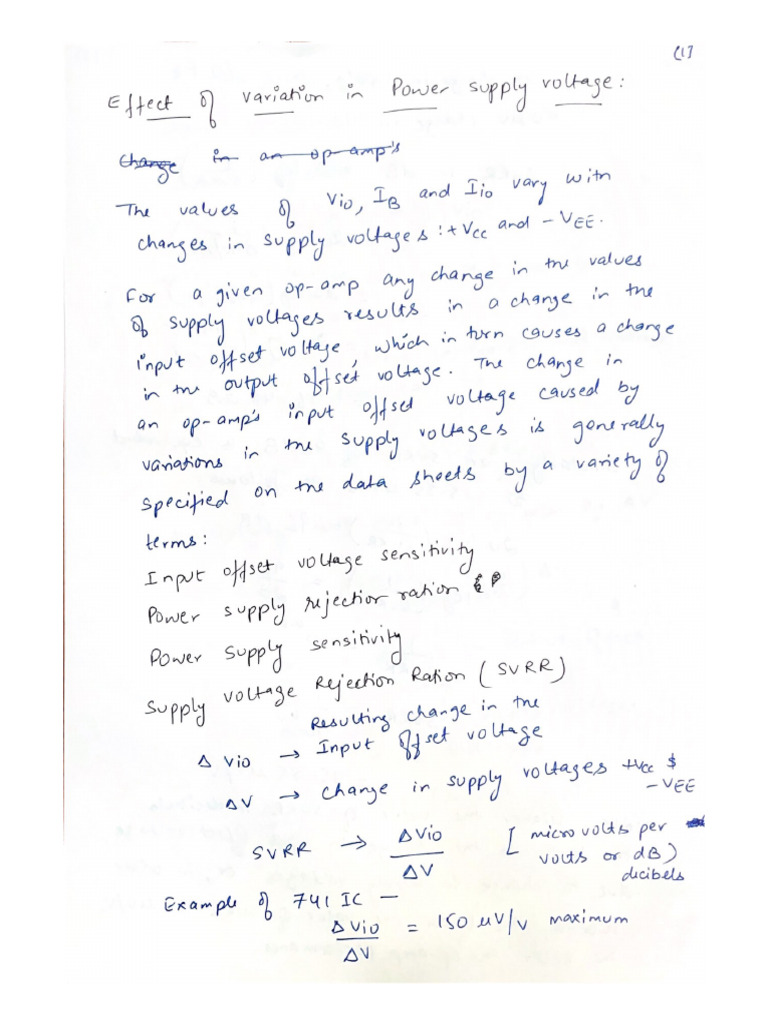 (1)
Effect of variation in Power supply voltage:
Change in an op-amp's
The values of Vio, IB and Iio vary with
changes in supply voltages: +Vcc and -VEE.
For a given op-amp any change in the values
of supply voltages results in a change in the
input offset voltage, which in turn causes a change
in the output offset voltage. The change in
an op-amp's input offset voltage caused by
variations in the supply voltages is generally
specified on the data sheets by a variety of
terms:
Input offset voltage sensitivity
Power supply rejection ration
Power supply sensitivity
Supply voltage Rejection Ration (SVRR)
Resulting change in the
Δ Vio → Input offset voltage
ΔV → change in supply voltages +Vcc $
-VEE
SVRR → ΔVio / ΔV [micro volts per
volts or dB)
decibels
Example of 741 IC —
ΔVio / ΔV = 150 μV/V maximum